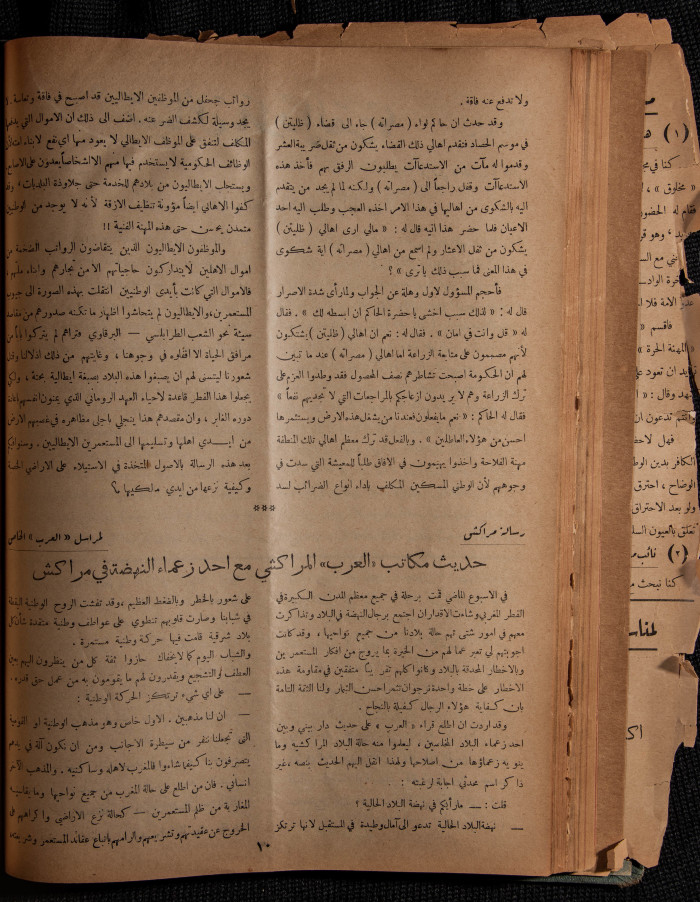 ولا تدفع عنه فاقة .
وقد حدث ان حاكم لواء ( مصراته ) جاء الى قضاء ( ظليتن )
في موسم الحصاد فتقدم اهالي ذلك القضاء يشكون من ثقل ضريبة العشر
وقدموا له مآت من الاستدعاآت يطلبون الرفق بهم فأخذ هذه
الاستدعاآت وقفل راجعاً الى ( مصراته ) ولكنه لما لم يجد من يتقدم
اليه بالشكوى من اهاليها في هذا الامر اخذه العجب وطلب اليه احد
الاعيان فلما حضر هذا اليه قال له : « مالي ارى اهالي ( ظليتن )
يشكون من ثقل الاعشار ولم اسمع من اهالي ( مصراته ) اية شكوى
في هذا المعنى فما سبب ذلك يا ترى » ؟
فأحجم المسؤول لاول وهلة عن الجواب ولما رأى شدة الاصرار
قال له : « لذلك سبب اخشى يا حضرة الحاكم ان ابسطه لك » . فقال
له « قل وانت في امان » . فقال له : نعم ان اهالي ( ظليتن ) يشتكون
لأنهم مصممون على متابعة الزراعة اما اهالي ( مصراته ) عند ما تبين
لهم ان الحكومة اصبحت تشاطرهم نصف المحصول فقد وطدوا العزم على
ترك الزراعة وهم لا يريدون ازعاجكم بالمراجعات التي لا تجديهم نفعاً »
فقال له الحاكم : « نعم ما يفعلون فعندنا من يشغل هذه الارض ويستثمرها
احسن من هؤلاء العاطلين » . وبالفعل قد ترك معظم اهالي تلك المنطقة
مهنة الفلاحة واخذوا يهيمون في الافاق طلباً للمعيشة التي سدت في
وجوههم لأن الوطني المسكين المكلف بإداء انواع الضرائب لسد
رواتب جحفل من الموظفين الايطاليين قد اصبح في فاقة وتعاسة . لا
يجد وسيلة لكشف الضر عنه . اضف الى ذلك ان الاموال التي يدفعها
المكلف لتنفق على الموظف الايطالي لا يعود منها اي نفع لابناء
الوظائف الحكومية لا يستخدم فيها منهم الا اشخاصاً يعدون على الاصابع
ويستجلب الايطاليون من بلادهم للخدمة حتى جلاوذة البلديات ؛ وقد
كفوا الاهالي ايضاً مؤونة تنظيف الازقة لأنه لا يوجد من الوطنيين
متمدن يحسن حتى هذه المهنة الفنية !!
والموظفون الايطاليون الذين يتقاضون الرواتب الضخمة من
اموال الاهلين لا يتداركون حاجياتهم الا من تجارهم وابناء ملتهم ،
فالاموال التي كانت بأيدي الوطنيين انتقلت بهذه الصورة الى جيوب
المستعمرين ، والايطاليون لم يتحاشوا اظهار ما تكنه صدورهم من مقاصد
سيئة نحو الشعب الطرابلسي — البرقاوي فتراهم لم يتركوا باباً من
مرافق الحياة الا اقفلوه في وجوهنا ، وغايتهم من ذلك اذلالنا وقتل
شعورنا ليتسنى لهم ان يصبغوا هذه البلاد بصبغة ايطالية بحتة ، ولكي
يجعلوا هذا القطر قاعدة لاحياء العهد الروماني الذي يمنون انفسهم باعادة
دوره الغابر ، وان مقصدهم هذا يتجلى باجلى مظاهره في غصبهم الارض
من ايـــدي اهلها وتسليمها الى المستعمرين الايطاليين . وسنوافيكم
بعد هذه الرسالة بالاصول المتخذة في الاستيلاء على الاراضي الخصبة
وكيفية نزعها من ايدي مالكيها ؟
***
رسالة مراكش
لمراسل « العرب » الخاص
حديث مكاتب « العرب » المراكشي مع احد زعماء النهضة في مراكش
في الاسبوع الماضي قمت برحلة في جميع معظم المدن الكبيرة في
القطر المغربي وشاءت الاقدار ان اجتمع برجال النهضة في البلاد وتذاكرت
معهم في امور شتى تهم حالة بلادنا من جميع نواحيها ، وقد كانت
اجوبتهم لي تعبر عما لهم من الخبرة بما يروج من افكار المستعمرين
وبالاخطار المحدقة بالبلاد وكانوا كلهم تقريباً متفقين في مقاومة هذه
الاخطار على خطة واحدة نرجو ان تثمر احسن الثمار ولنا الثقة التامة
بأن كفاية هؤلاء الرجال كفيلة بالنجاح .
وقد اردت ان اطلع قراء « العرب » على حديث دار بيني وبين
احد زعماء البلاد المخلصين ، ليعلموا منه حالة البلاد المراكشية وما
ينويه زعماؤها من اصلاحها ولهذا انقل اليهم الحديث بنصه ، غير
ذاكر اسم محدثي اجابة لرغبته :
قلت : — ما رأيكم في نهضة البلاد الحالية ؟
— نهضة البلاد الحالية تدعو الى آمال وطيدة في المستقبل لانها ترتكز
على شعور بالخطر وبالضغط العظيم ، وقد تفشت الروح الوطنية اليقظة
في شبابنا وصارت قلوبهم تنطوي على عواطف وطنية متقدة شأن كل
بلاد شرقية قامت فيها حركة وطنية مستمرة .
والشباب اليوم كما لا يخفاك حازوا ثقة كل من ينظرون اليهم بعين
العطف أو التشجيع ويقدرون لهم ما يقومون به من عمل حق قدره .
— على اي شيء ترتكز الحركة الوطنية :
— ان لنا مذهبين . الاول خاص وهو مذهب الوطنية او القومية
التي تجعلنا ننفر من سيطرة الاجانب ومن ان نكون آلة في يدهم
يتصرفون بنا كيفما شاءوا فالمغرب لاهله وساكنيه . والمذهب الآخر
انساني . فان من اطلع على حالة المغرب من جميع نواحيها وما يقاسيه
المغاربة من ظلم المستعمرين — كحالة نزع الاراضي واكراههم على
الخروج عن عقيدتهم وتشريعهم والزامهم باتباع عقائد المستعمر وشريعته
١٠
(١)
كنا في
« مخلوق » ،
فقام له الحضور
فاقسم «
« المهنة الحرة »
فهل لاحظ
الكافر بدين
الوضاح ، احترق
ولو بعد الاحتراق
تعلق بالعيون
(٢) نائب
كنا نبحث